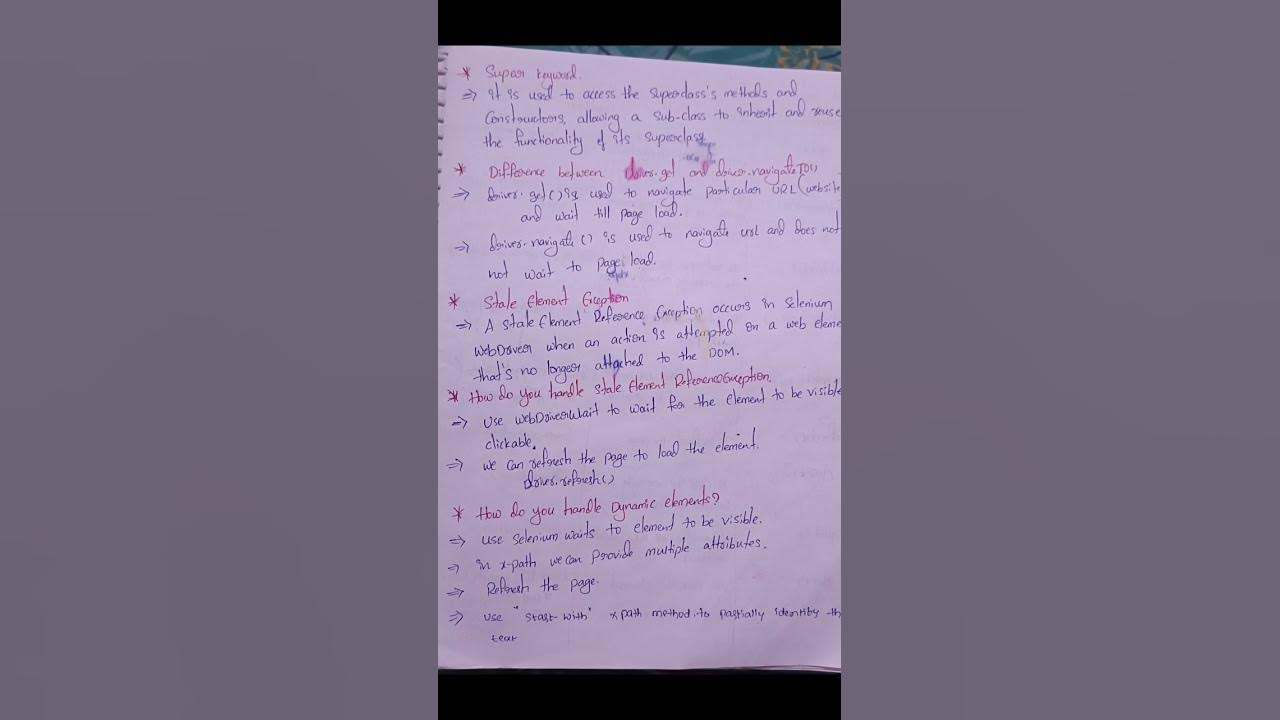 * Supar keyword.
⇒ it is used to access the Superclass's methods and
Constructors, allowing a sub-class to inherit and reuse
the functionality of its Superclass.
* Difference between driver.get and driver.navigateTO()
⇒ driver.get() is used to navigate particular URL (website
and wait till page load.
⇒ driver.navigate() is used to navigate url and does not
not wait to page load.
* Stale Element Exception
⇒ A Stale Element Reference Exception occurs in Selenium
WebDriver when an action is attempted on a web eleme
that's no longer attached to the DOM.
* How do you handle Stale Element ReferenceException
⇒ Use WebDriverWait to wait for the element to be visible
clickable.
⇒ we can refresh the page to load the element.
driver.refresh()
* How do you handle Dynamic elements?
⇒ use Selenium waits to element to be visible.
⇒ in x-path we can provide multiple attributes.
⇒ Refresh the page.
⇒ use "start-with" xpath method to partially identiby th